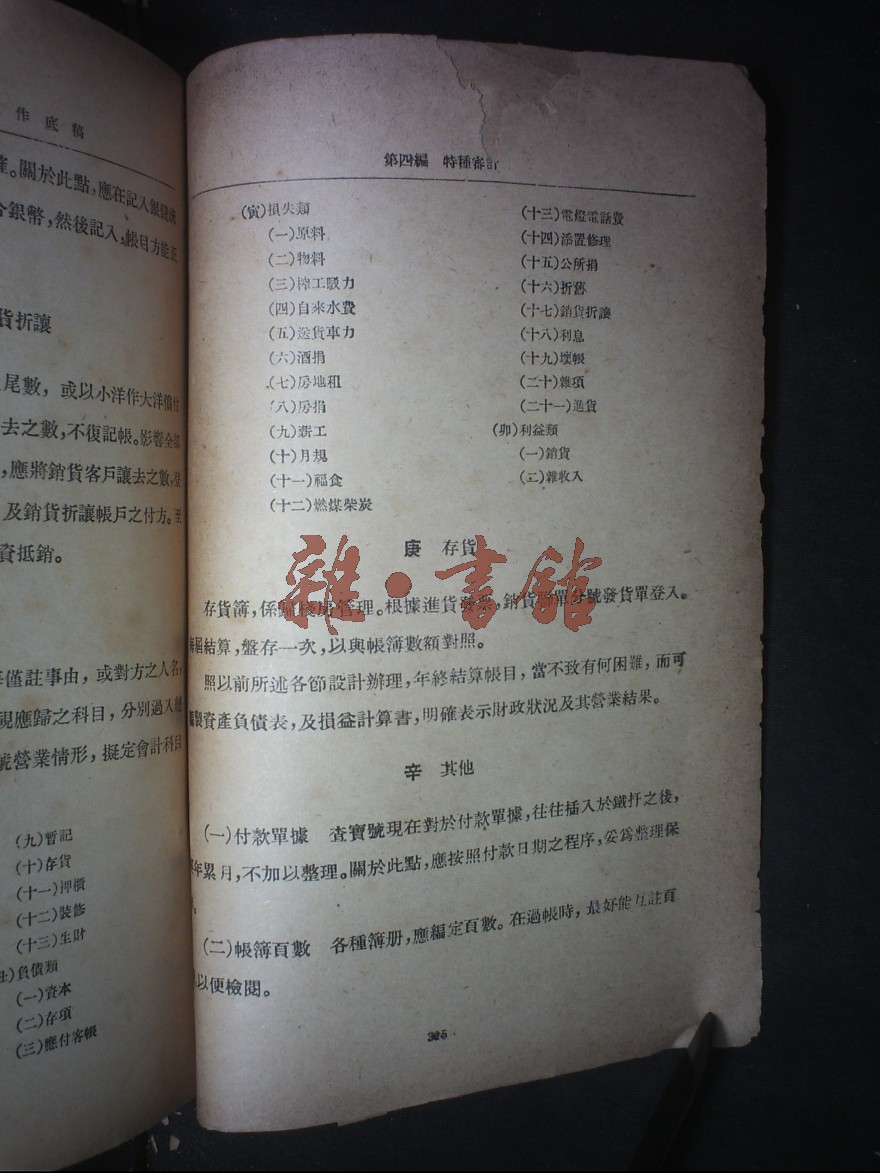 作底稿
。關於此點,應在記入銀錢流
銀幣,然後記入,帳目方能正
貨折讓
尾數,或以小洋作大洋償付
去之數,不復記帳。影響全部
,應將銷貨客戶讓去之數,登
及銷貨折讓帳戶之付方。至
資抵銷。
僅註事由,或對方之人名,
視應歸之科目,分別過入總
號營業情形,擬定會計科目
(九)暫記
(十)存貨
(十一)押櫃
(十二)裝修
(十三)生財
負債類
(一)資本
(二)存項
(三)應付客帳
第四編 特種審訂
(寅)損失類
(一)原料
(二)物料
(三)榨工駁力
(四)自來水費
(五)送貨車力
(六)酒捐
(七)房地租
(八)房捐
(九)薪工
(十)月規
(十一)福食
(十二)燃煤柴炭
(十三)電燈電話費
(十四)添置修理
(十五)公所捐
(十六)折舊
(十七)銷貨折讓
(十八)利息
(十九)壞帳
(二十)雜項
(二十一)進貨
(卯)利益類
(一)銷貨
(二)雜收入
庚 存貨
雜·書館
存貨簿,係歸棧房管理。根據進貨發票,銷貨聯單分號發貨單登入。
每屆結算,盤存一次,以與帳簿數額對照。
照以前所述各節設計辦理,年終結算帳目,當不致有何困難,而可
編製資產負債表,及損益計算書,明確表示財政狀況及其營業結果。
辛 其他
(一)付款單據 查寶號現在對於付款單據,往往插入於鐵扦之後,
年累月,不加以整理。關於此點,應按照付款日期之程序,妥爲整理保
。
(二)帳簿頁數 各種簿册,應編定頁數。在過帳時,最好能互註頁
以便檢閱。
325